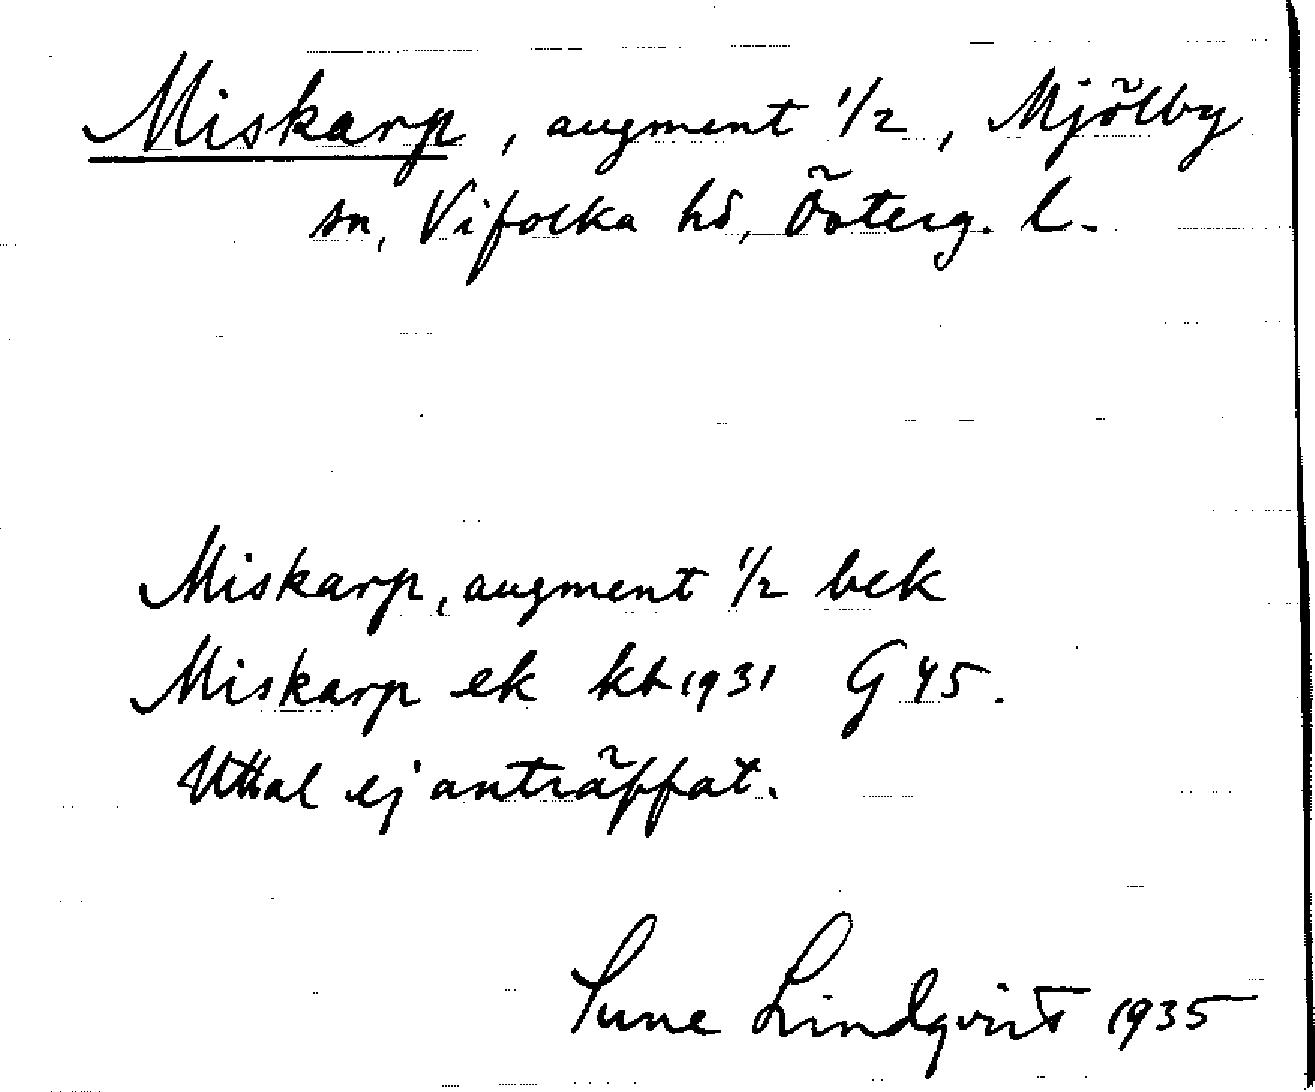 Miskarp, augment 1/2, Mjölby
sn, Vifolka hd, Österg. l.
Miskarp, augment 1/2 bek
Miskarp ek kb 1931 G 45.
Uttal ej anträffat.
Sune Lindqvist 1935